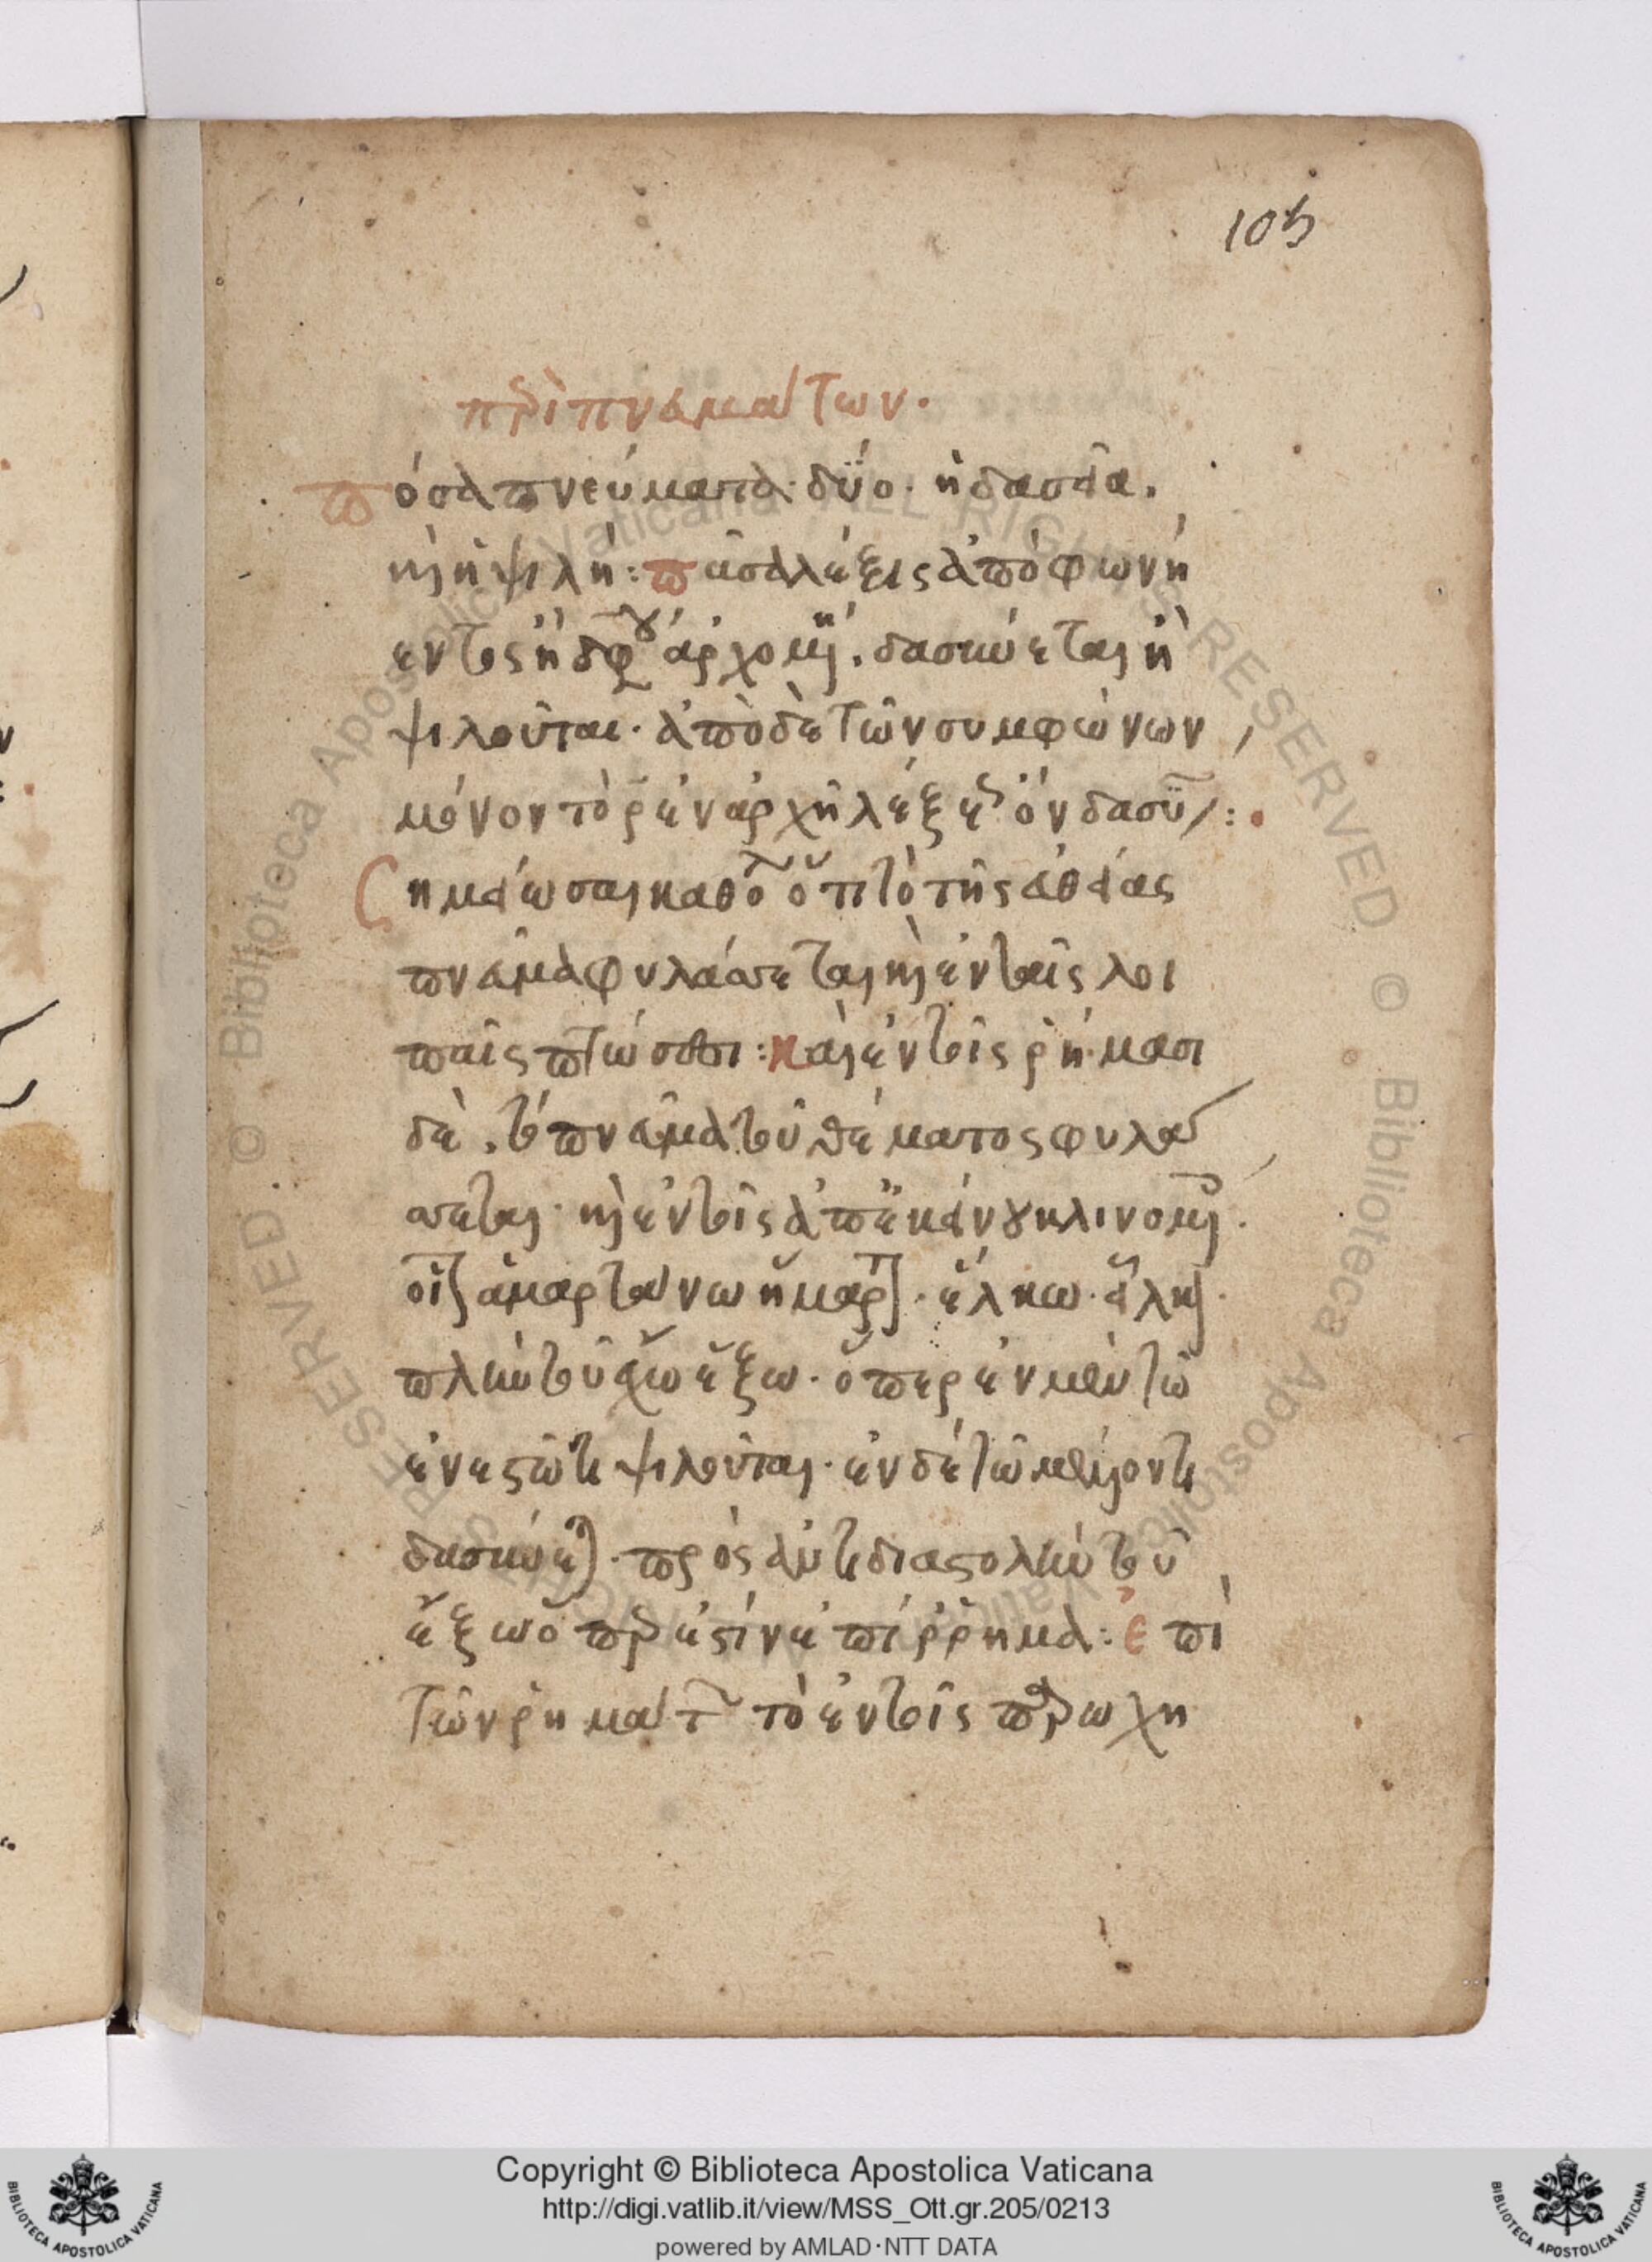 105
περὶ πνευμάτων.
πόσα πνεύματα· δύο· ἡ δασεῖα,
καὶ ἡ ψιλή: πᾶσα λέξις ἀπὸ φωνή
εντος ἢ διφθόγγου ἀρχομένη, δασεύεται ἢ
ψιλοῦται· ἀπὸ δὲ τῶν συμφώνων,
μόνον τὸ ρ ἐν ἀρχῇ λέξεως ὂν δασύνεται:
Σημείωσαι καθόλου ὅτι τὸ τῆς εὐθείας
πνεῦμα φυλάττεται καὶ ἐν ταῖς λοι
παῖς πτώσεσι: καὶ ἐν τοῖς ρήμασι
δὲ, τὸ πνεῦμα τοῦ θέματος φυλά
ττεται· καὶ ἐν τοῖς ἀπ' ἐκείνου κλινομένοις.
οἷον ἁμαρτάνω ἡμάρτηκα· ἕλκω· εἷλκον·
πλὴν τοῦ ἔχω ἕξω· ὅπερ ἐν μὲν τῷ
ἐνεστῶτι ψιλοῦται· ἐν δὲ τῷ μέλλοντι
δασεύεται· πρὸς ἀντιδιαστολὴν τοῦ
ἔξω ὅπερ ἐστὶν ἐπίρρημα: ἐπὶ
τῶν ρημάτων τὸ ἐν τοῖς παρωχη
Copyright © Biblioteca Apostolica Vaticana
http://digi.vatlib.it/view/MSS_Ott.gr.205/0213
powered by AMLAD·NTT DATA
BIBLIOTECA APOSTOLICA VATICANA
BIBLIOTECA APOSTOLICA VATICANA